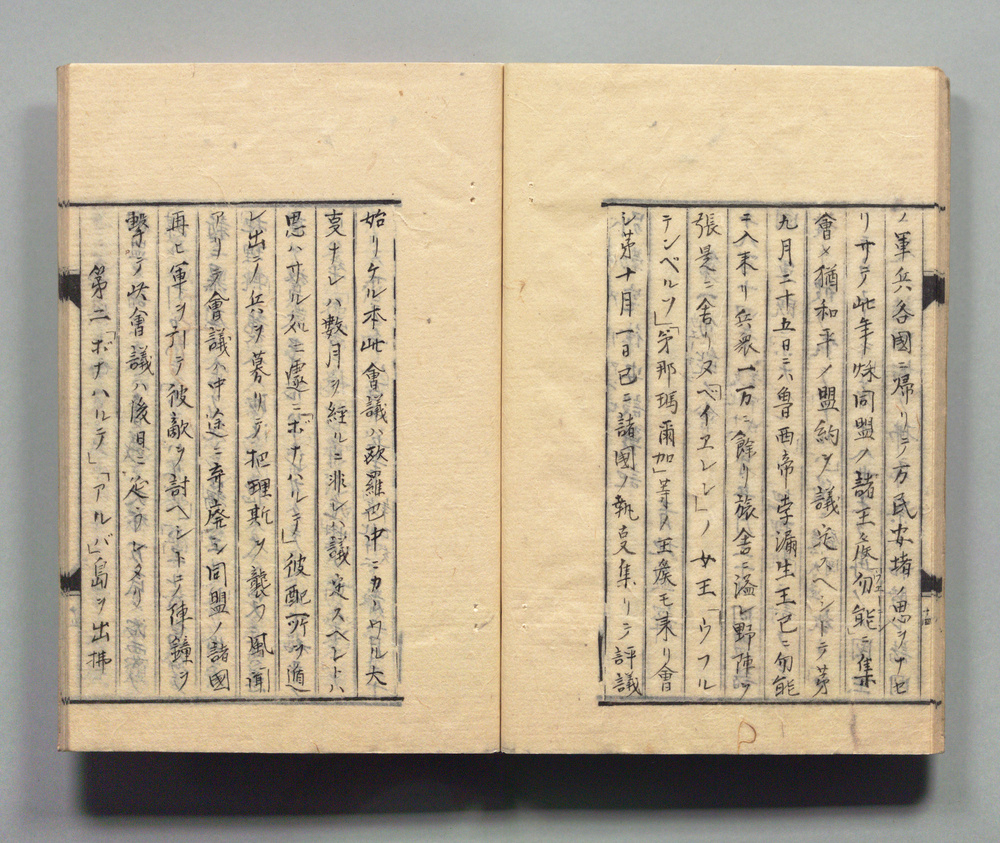 ノ軍兵各國ニ帰リテ万民安堵ノ思ヲナセ
リサテ此年秋同盟ノ諸王侯「勿能」ニ集
會メ猶和平ノ盟約ヲ議定スヘシトテ第
九月二十五日ニハ魯西帝孛漏生王已ニ勿能
ニ入来リ兵衆一万ニ餘リ旅舎ニ溢レ野陣ヲ
張是ニ舎リヌ「ベイエレン」ノ女王「ウフル
テンベルフ」「第那瑪爾加」等ノ王侯モ来リ會
シ第十月一日已ニ諸國ノ執叓集リテ評議
始リケル本此會議ハ欧羅巴中ニカヽワル大
叓ナレハ數月ヲ經ルニ非レハ議定スヘシトハ
思ハサル処ニ遽ニ「ボナハルテ」彼配所ヲ遁
レ出テ兵ヲ募リテ把理斯ヲ襲フ風聞
アリテ會議ハ中途ニ弃廃シ同盟ノ諸國
再ヒ軍ヲ引テ彼敵ヲ討ヘシトテ陣鐘ヲ
撃テ此會議ハ後日ニ延ラレタリ
第二「ボナハルテ」「アルバ」島ヲ出拂